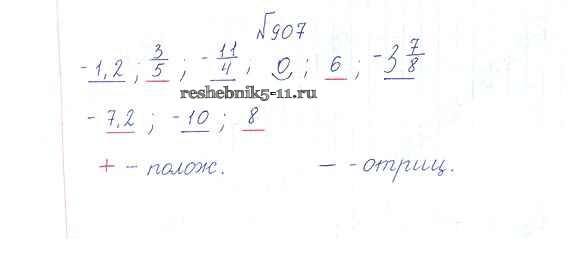 №907
-1,2 ; 3/5 ; -11/4 ; 0 ; 6 ; -3 7/8
reshebnik5-11.ru
-7,2 ; -10 ; 8
+ - полож. — - отриц.